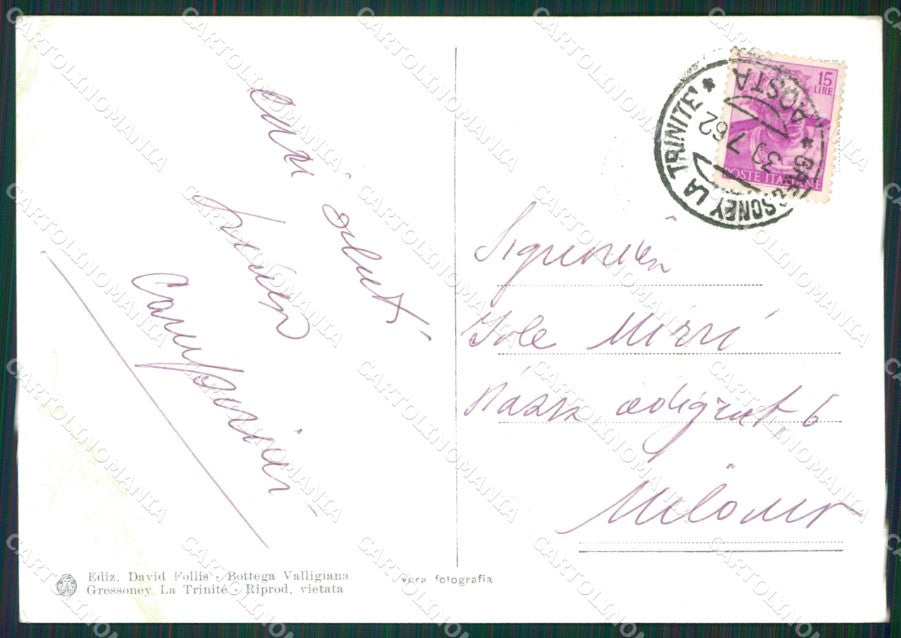 cari saluti
Campanini
15
LIRE
POSTE ITALIANE
* GRESSONEY LA TRINITE' *
AOSTA
30 7 62
Signorina
Iole Mirri
Piazza Adigrat 6
Milano
Ediz. David Follis - Bottega Valligiana
Gressoney La Trinité - Riprod. vietata
vera fotografia
CARTOLINOMANIA